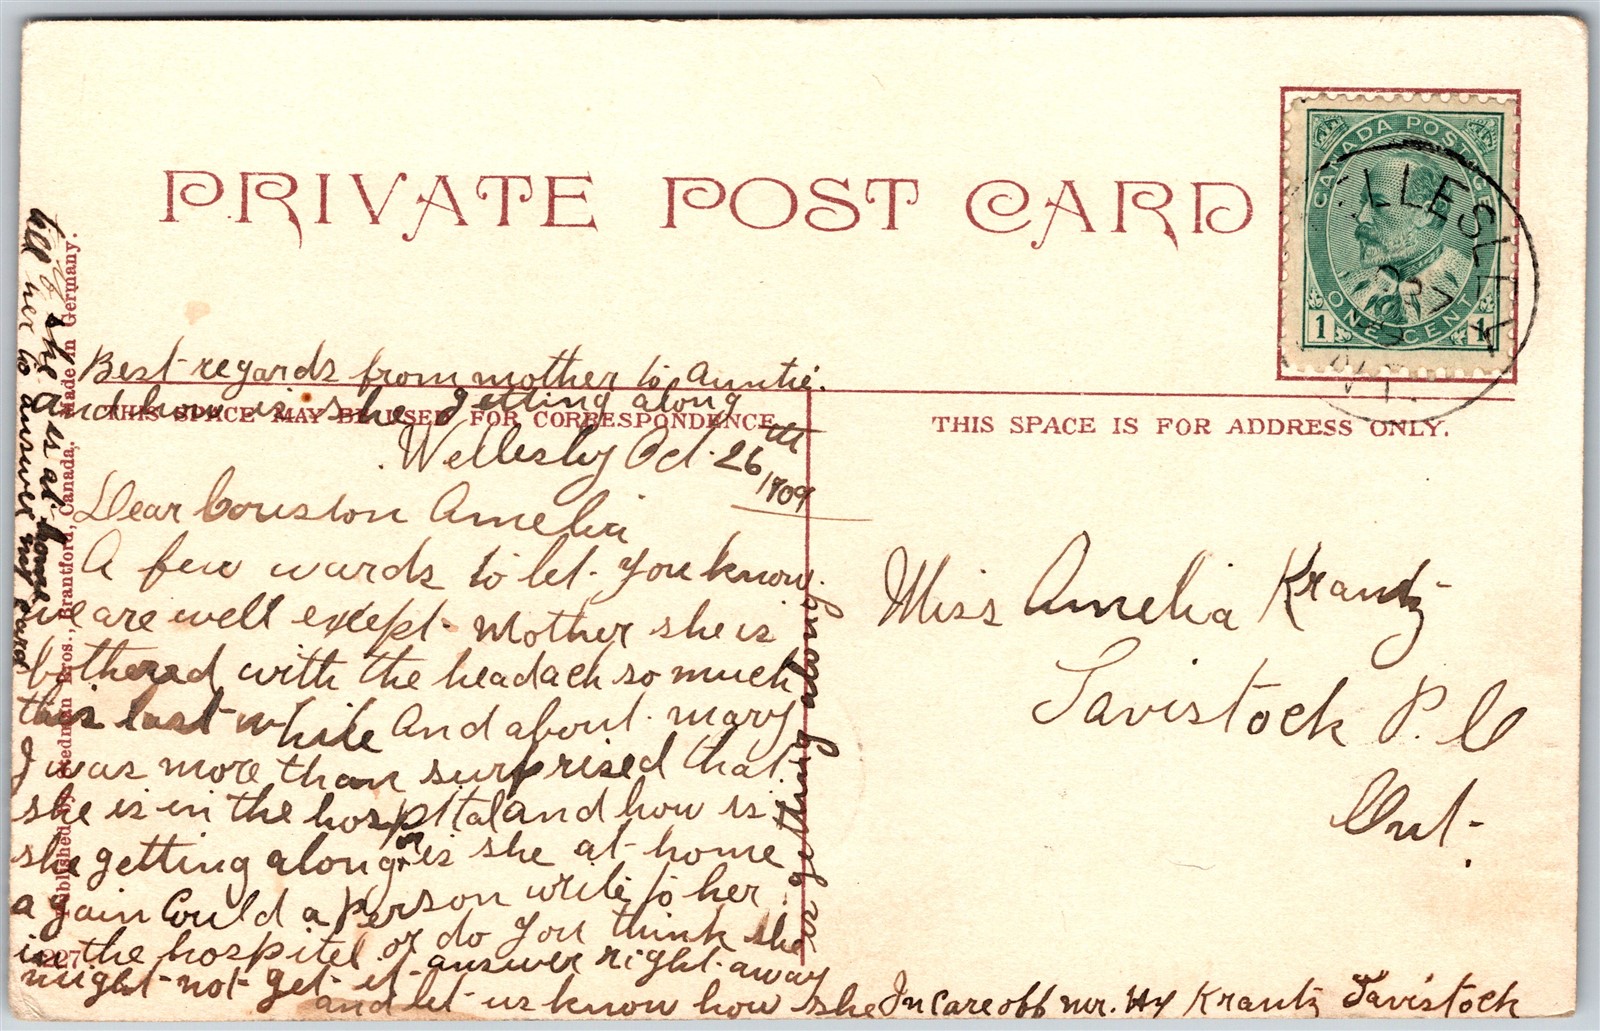 PRIVATE POST CARD
CANADA POSTAGE
ONE CENT
1 1
ELLESLEY
OC 27
09
ONT.
THIS SPACE MAY BE USED FOR CORRESPONDENCE
THIS SPACE IS FOR ADDRESS ONLY.
Best regards from mother to Auntie.
and how is she getting along
Wellesley Oct. 26th
1909
Dear Cousion Amelia
A few wards to let you know
we are well exept Mother she is
bothered with the headach so much
this last while And about mary
I was more than surprised that
she is in the hospital and how is
she getting along or is she at home
again Could a person write to her
in the hospitel or do you think she
might not get it answer right away
and let us know how she
is getting along
if she is at home
tell her to answer my card
Miss Amelia Krantz
Tavistock P. O
Ont.
In Care off mr. Hy Krantz Tavistock
Published by Stedman Bros., Brantford, Canada, Made in Germany.